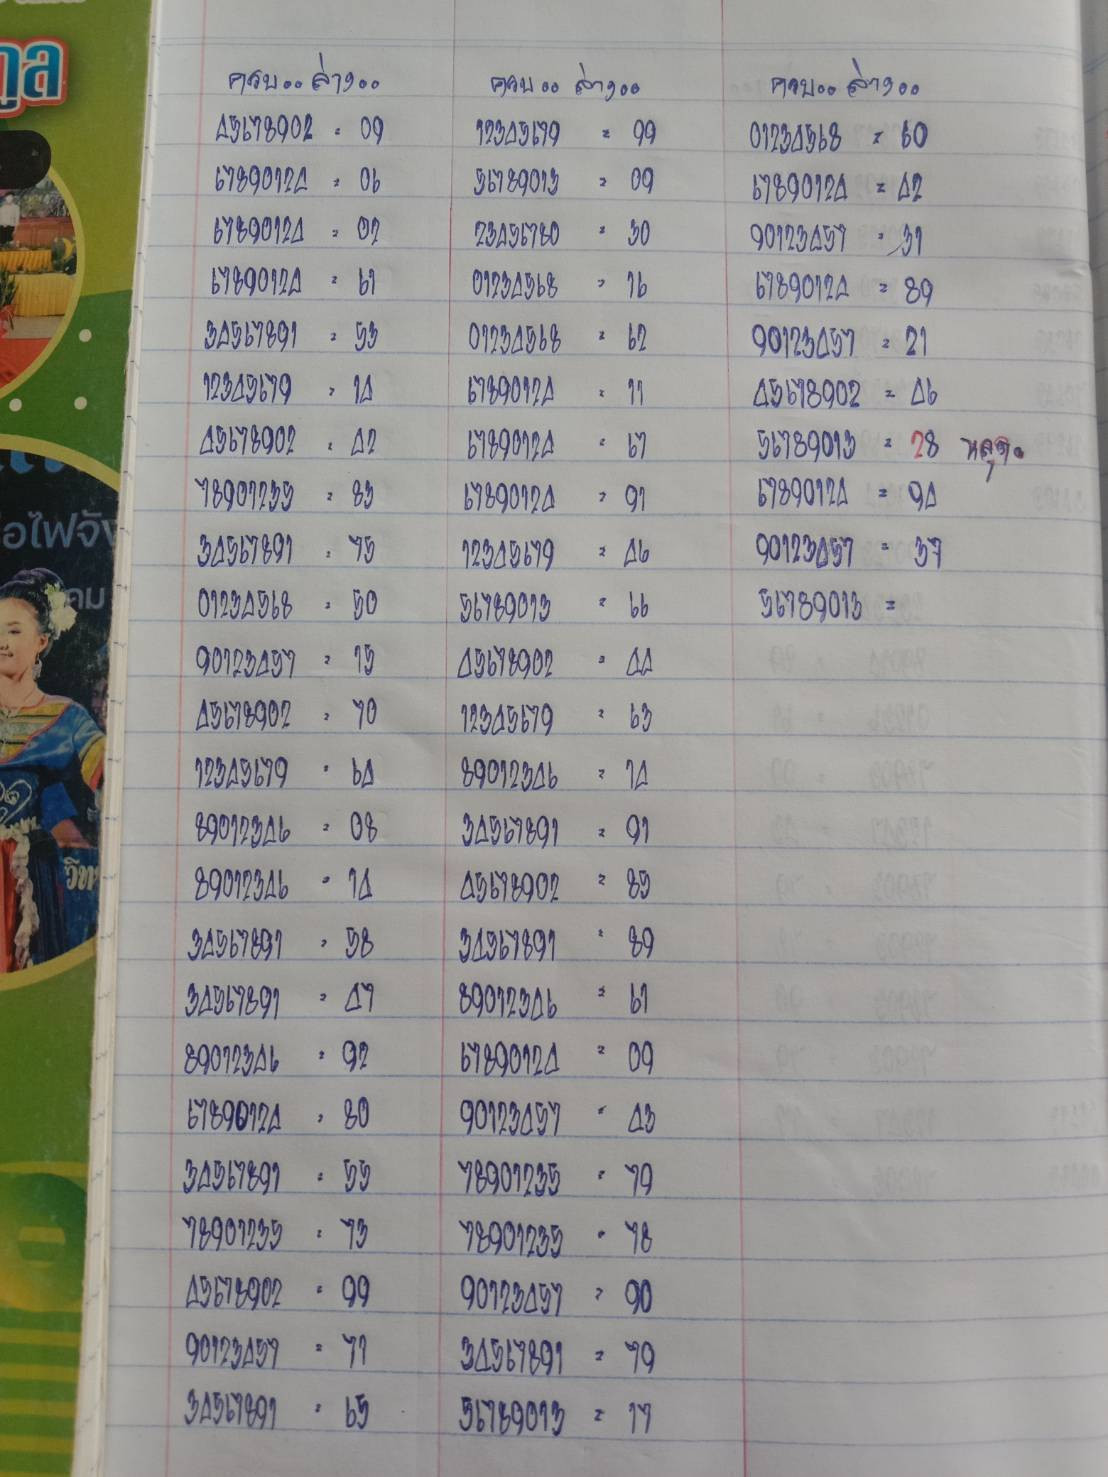 กูล
อไฟจัง
คม
วิท
ครบ.. ล่าง.. ครบ.. ล่าง.. ครบ.. ล่าง..
45678902 = 09 12345679 = 99 01234568 = 60
67890124 = 06 56789013 = 09 67890124 = 42
67890124 = 02 23456780 = 30 90123457 = 31
67890124 = 61 01234568 = 16 67890124 = 89
34567891 = 53 01234568 = 62 90123457 = 21
12345679 = 14 67890124 = 11 45678902 = 46
45678902 = 42 67890124 = 67 56789013 = 28 หลุด.
78901235 = 83 67890124 = 91 67890124 = 94
34567891 = 75 12345679 = 46 90123457 = 37
01234568 = 50 56789013 = 66 56789013 =
90123457 = 15 45678902 = 44
45678902 = 70 12345679 = 63
12345679 = 64 89012346 = 14
89012346 = 08 34567891 = 91
89012346 = 14 45678902 = 85
34567891 = 58 34567891 = 89
34567891 = 47 89012346 = 61
89012346 = 92 67890124 = 09
67890124 = 80 90123457 = 43
34567891 = 55 78901235 = 79
78901235 = 73 78901235 = 78
45678902 = 99 90123457 = 90
90123457 = 71 34567891 = 79
34567891 = 65 56789013 = 17